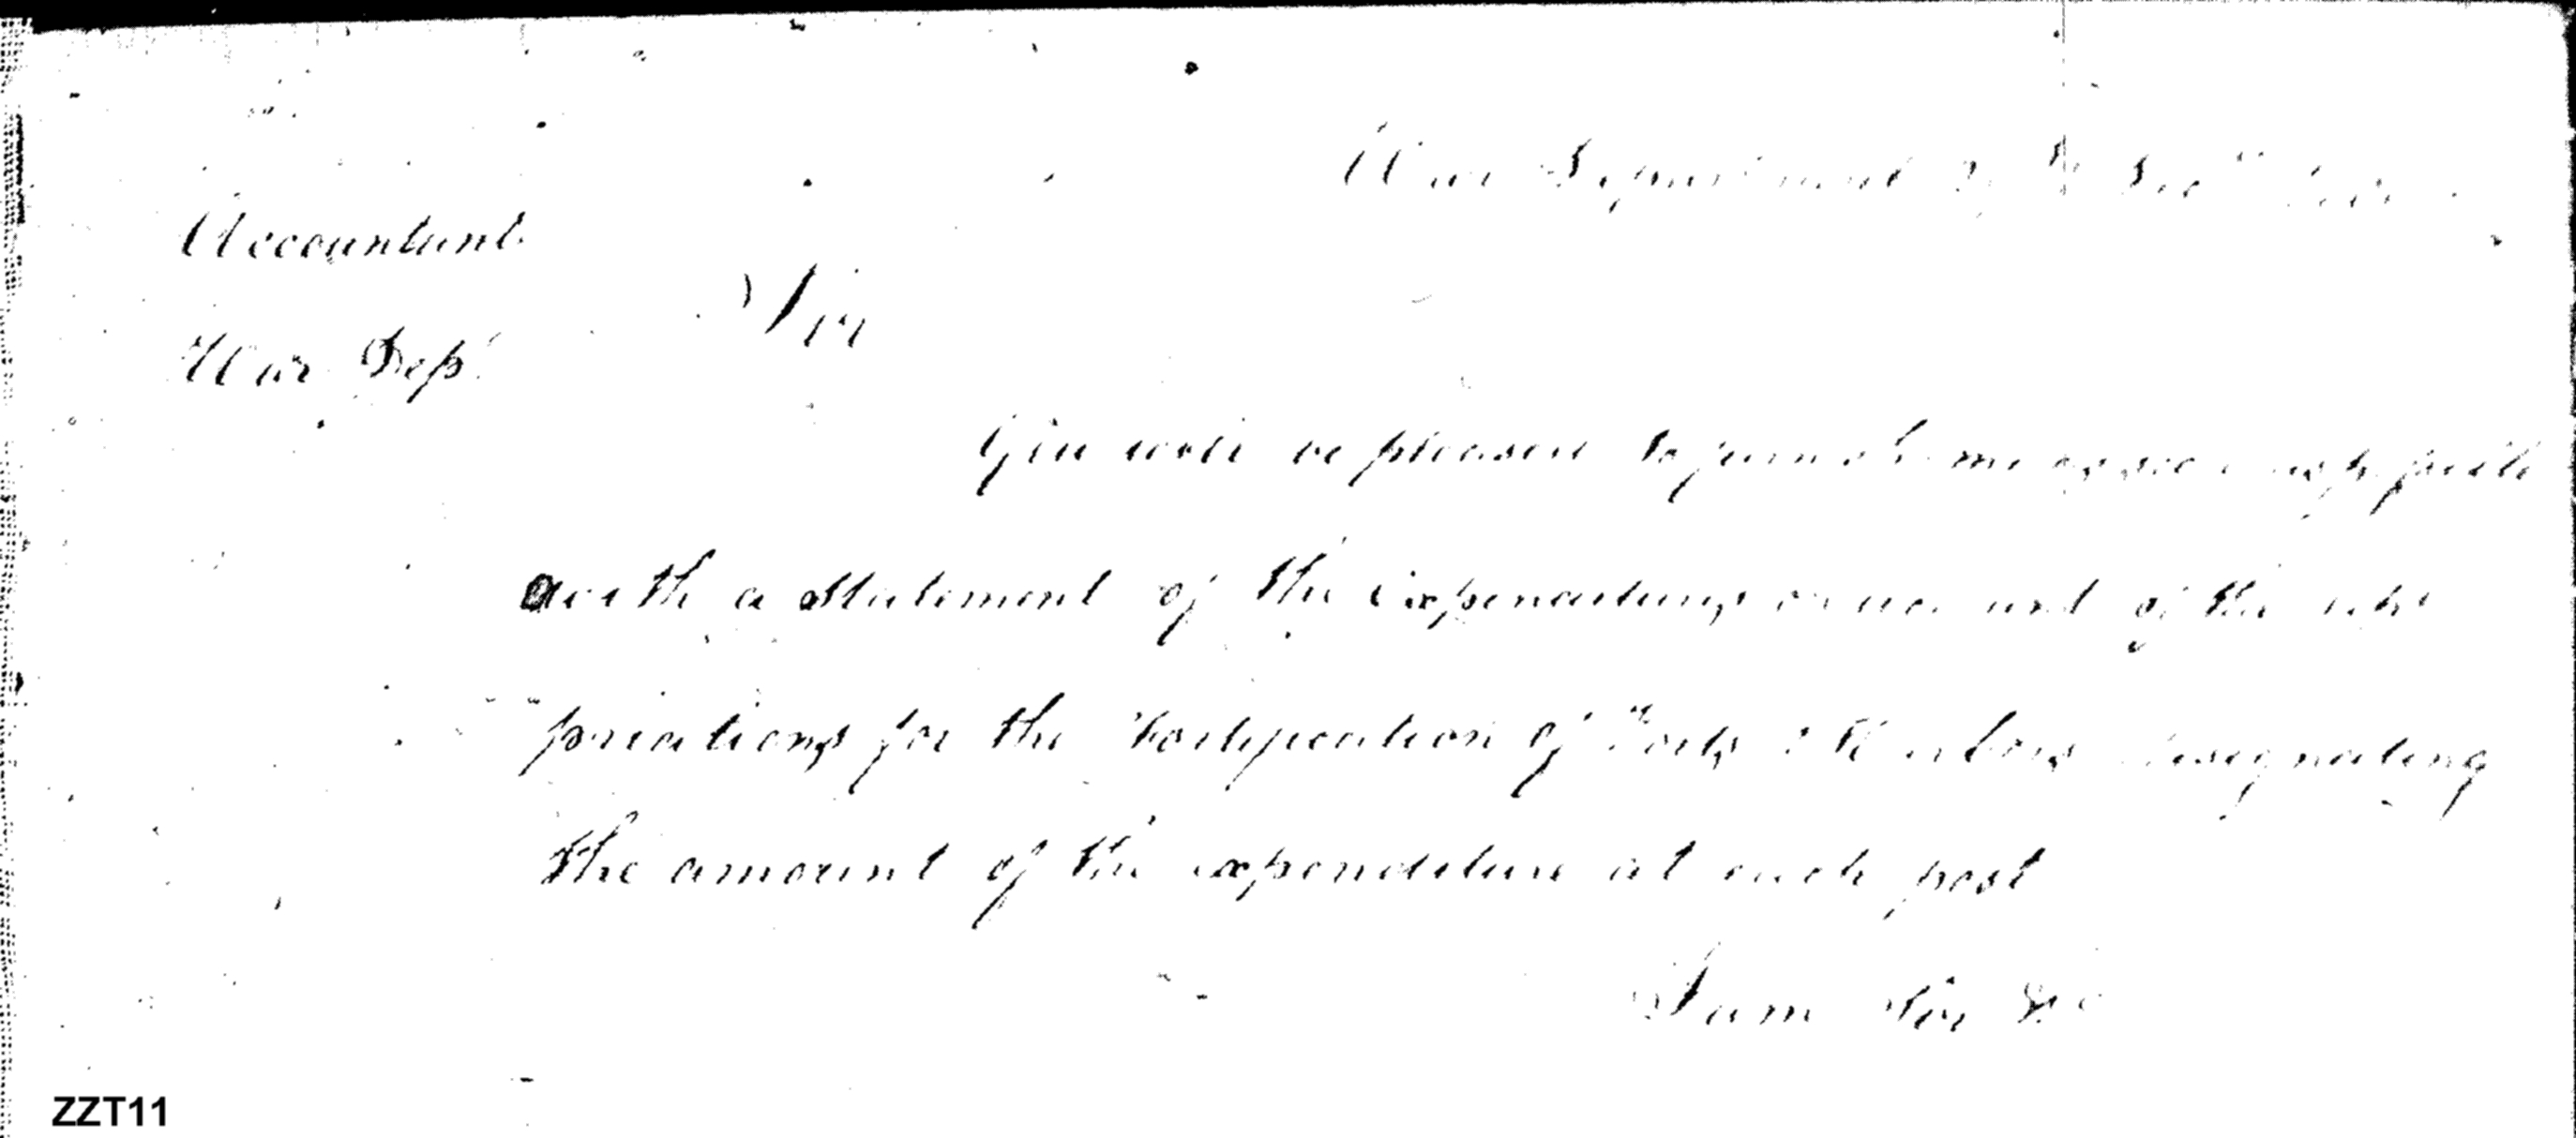 War Department
Accountant
Sir
War Dept
You will be pleased to furnish me as soon as possible
with a statement of the expenditures on account of the
priations for the Fortification of Ports & Harbors designating
the amount of the expenditure at each post
I am Sir &c
ZZT11